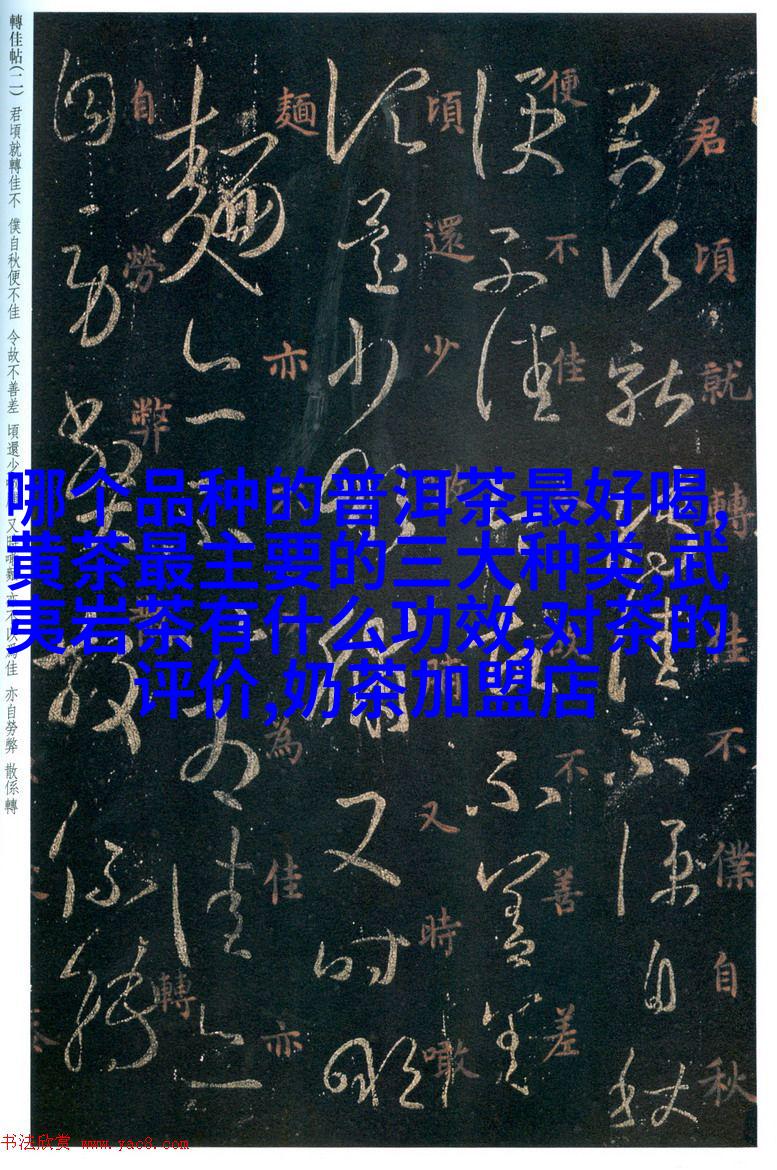 轉佳帖(二) 君頃就轉佳不 僕自秋便不佳 今故不善差 頃還少 又 佳 亦自勞弊 散係轉
君頃就轉佳不僕自秋
便不佳 故不善差
頃還少 又時噉
麵亦 為佳亦
自勞弊 轉
哪个品种的普洱茶最好喝,
黄茶最主要的三大种类,武
夷岩茶有什么功效,对茶的
评价,奶茶加盟店
书法欣赏 www.yac8.com